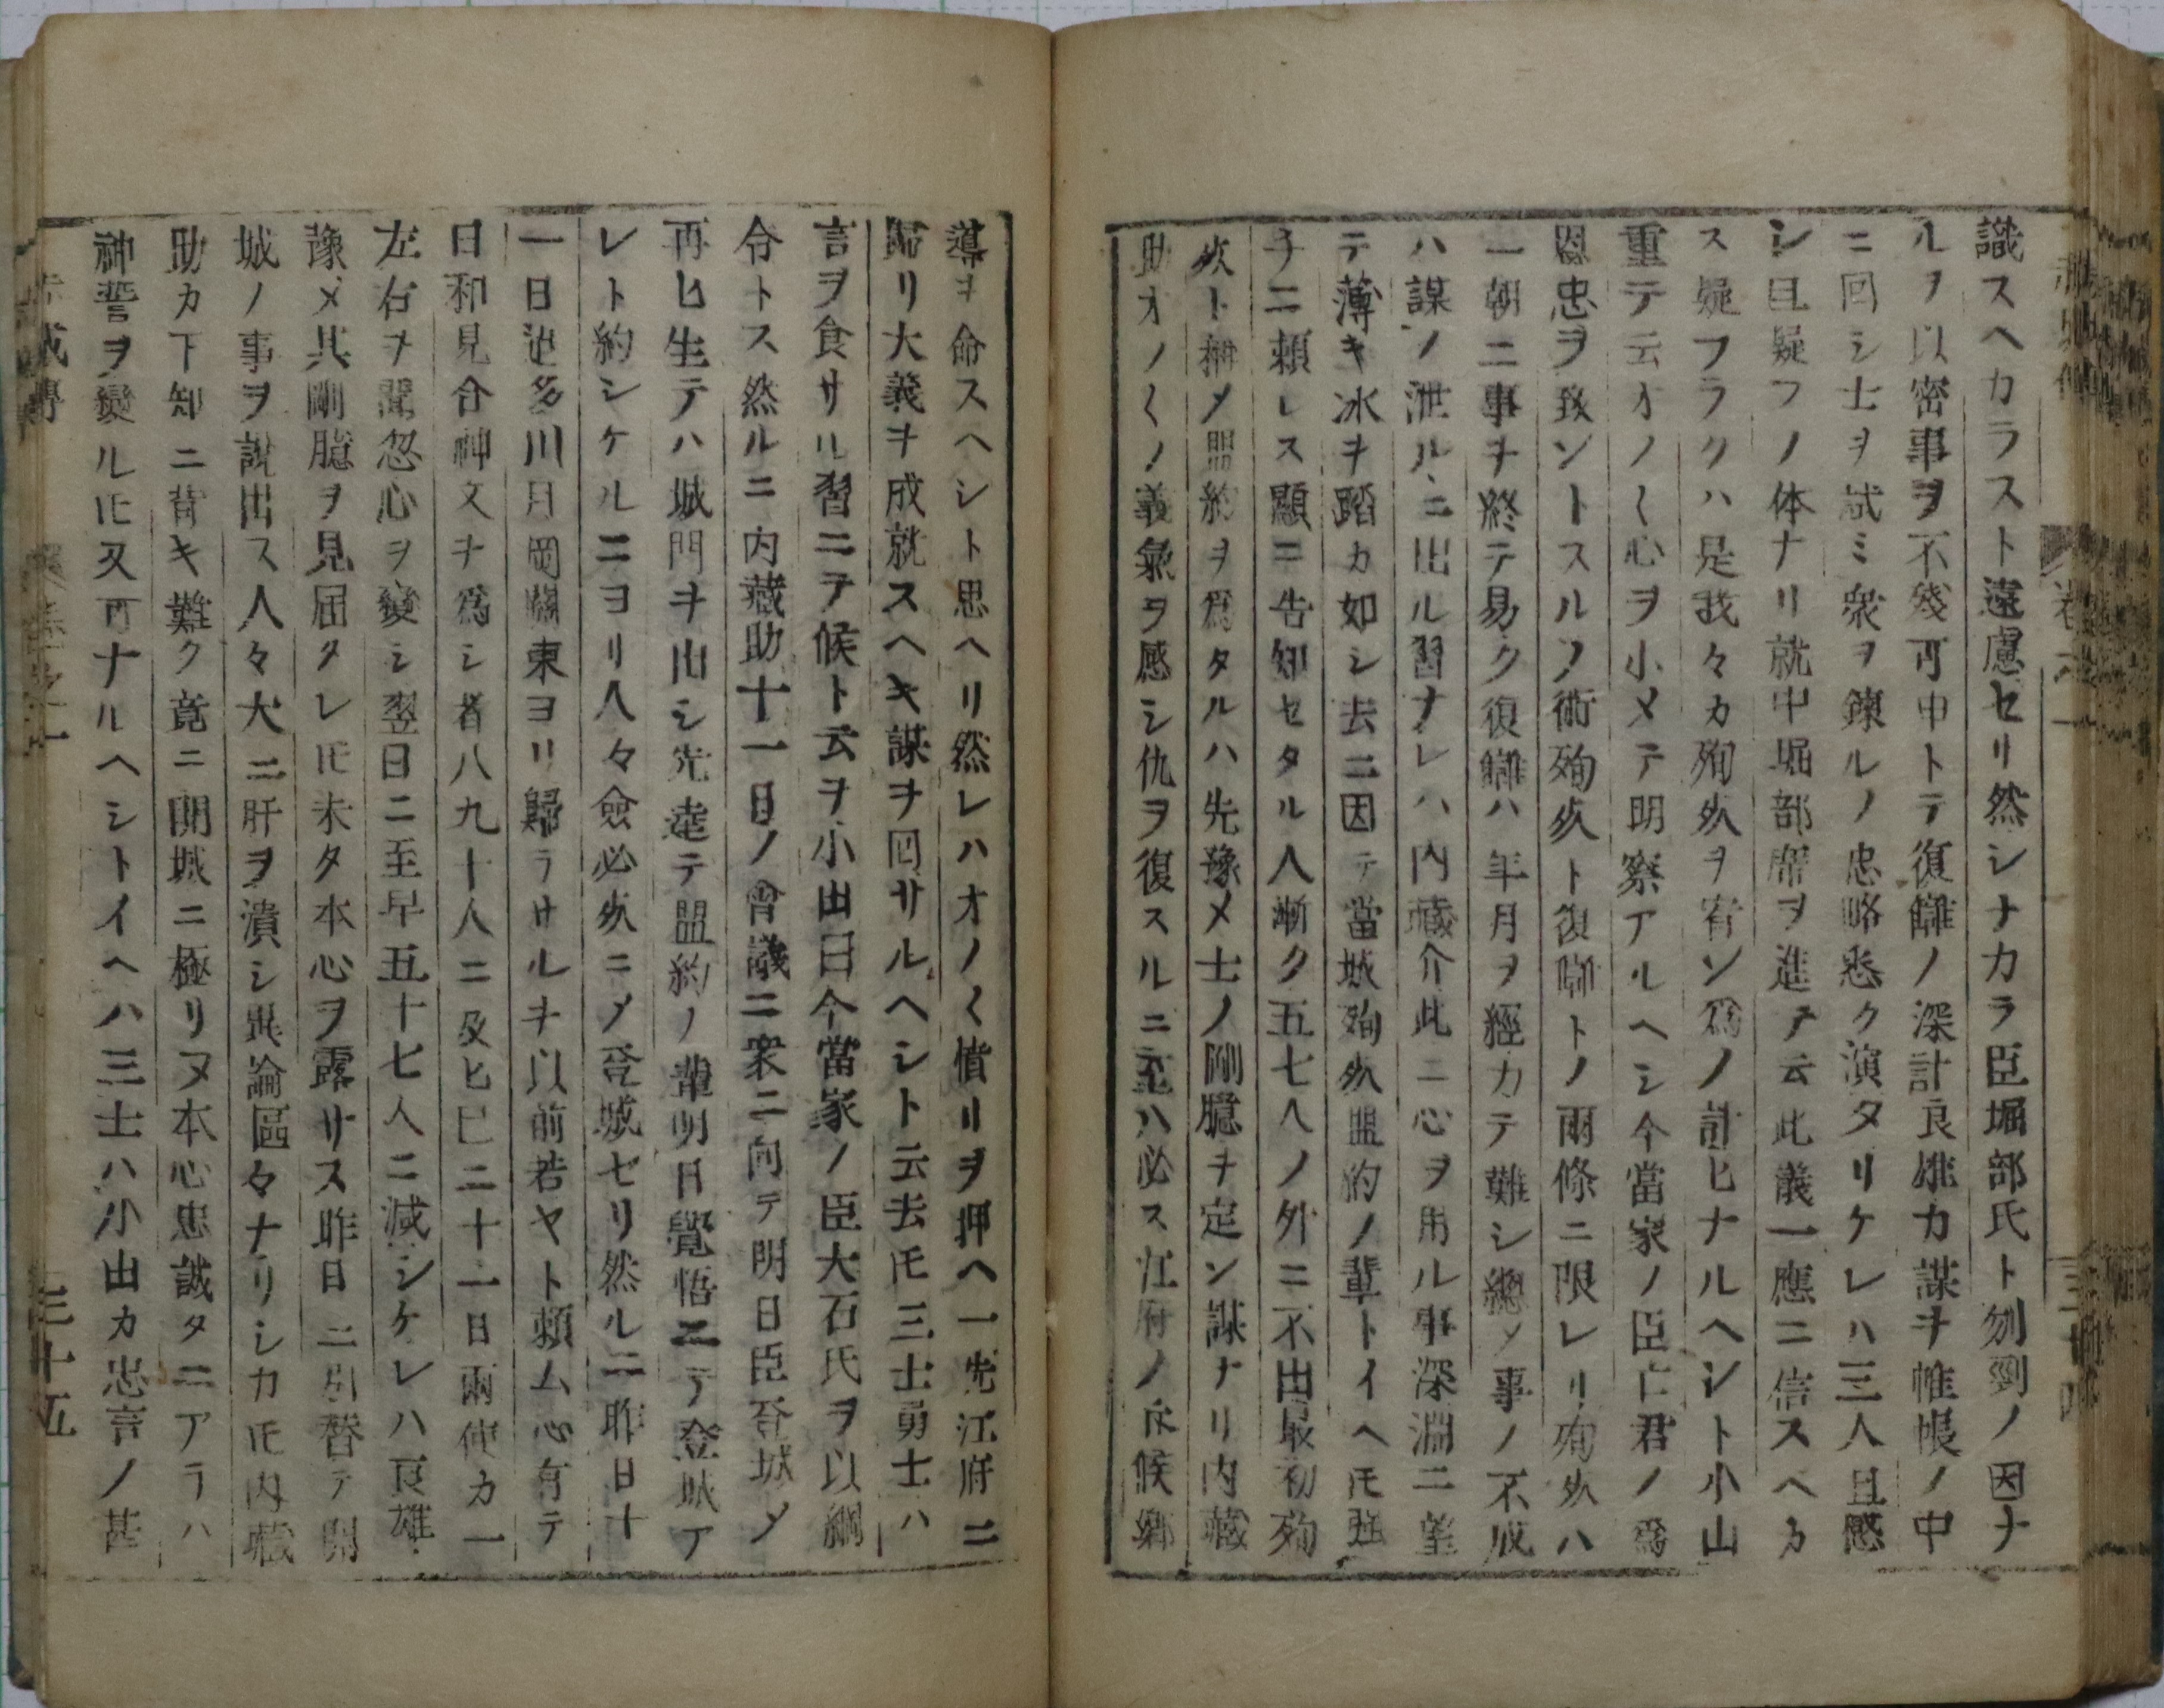 識スヘカラスト遠慮セリ然シナカラ臣堀部氏ト刎剄ノ因ナ
ルヲ以密事ヲ不殘可申トテ復讎ノ深計良雄カ謀ヲ帷帳ノ中
ニ回シ士ヲ試ミ衆ヲ鍊ルノ忠略悉ク演タリケレハ三人且感
シ且疑フノ体ナリ就中堀部席ヲ進テ云此義一應ニ信スヘカ
ス疑フラクハ是我々カ殉死ヲ宥ン爲ノ計ヒナルヘシト小山
重テ云オノ〱心ヲ小メテ明察アルヘシ今當家ノ臣亡君ノ爲
恩忠ヲ致ントスルノ術殉死ト復讎トノ兩條ニ限レリ殉死ハ
一朝ニ事ヲ終テ易ク復讎ハ年月ヲ經カテ難シ總メ事ノ不成
ハ謀ノ泄ルニ出ル習ナレハ内藏介此ニ心ヲ用ル事深淵ニ望
テ薄キ冰ヲ踏カ如シ去ニ因テ當城殉死盟約ノ輩トイヘ𪜈强
チニ頼レス顯ニ告知セタル人漸ク五七人ノ外ニ不出最初殉
死ト稱メ盟約ヲ爲タルハ先豫メ士ノ剛臆ヲ定ン謀ナリ内藏
助オノ〱ノ義氣ヲ感シ仇ヲ復スルニ至ハ必ス江府ノ斥候郷
導ヲ命スヘシト思ヘリ然レハオノ〱憤リヲ押ヘ一先江府ニ
歸リ大義ヲ成就スヘキ謀ヲ回サルヘシト云去𪜈三士勇士ハ
言ヲ食サル習ニテ候ト云ヲ小山曰今當家ノ臣大石氏ヲ以綱
令トス然ルニ内藏助十一日ノ會議ニ衆ニ向テ明日臣登城メ
再ヒ生テハ城門ヲ出シ先達テ盟約ノ輩明日覺悟ニテ登城ア
レト約シケルニヨリ人々僉必死ニメ登城セリ然ルニ昨日十
一日迠多川月岡關東ヨリ歸ラサルヲ以前若ヤト頼ム心有テ
日和見合神文ヲ爲シ者八九十人ニ及ヒ巳二十一日兩使カ一
左右ヲ聞忽心ヲ變シ翌日ニ至早五十七人ニ減シケレハ良雄
豫メ其剛臆ヲ見屆タレ𪜈未タ本心ヲ露サス昨日ニ引替テ開
城ノ事ヲ說出ス人々大ニ肝ヲ潰シ異論區々ナリシカ𪜈内藏
助カ下知ニ背キ難ク竟ニ開城ニ極リヌ本心忠誠タニアラハ
神誓ヲ變ル𪜈又可ナルヘシトイヘハ三士ハ小山カ忠言ノ甚
三十五